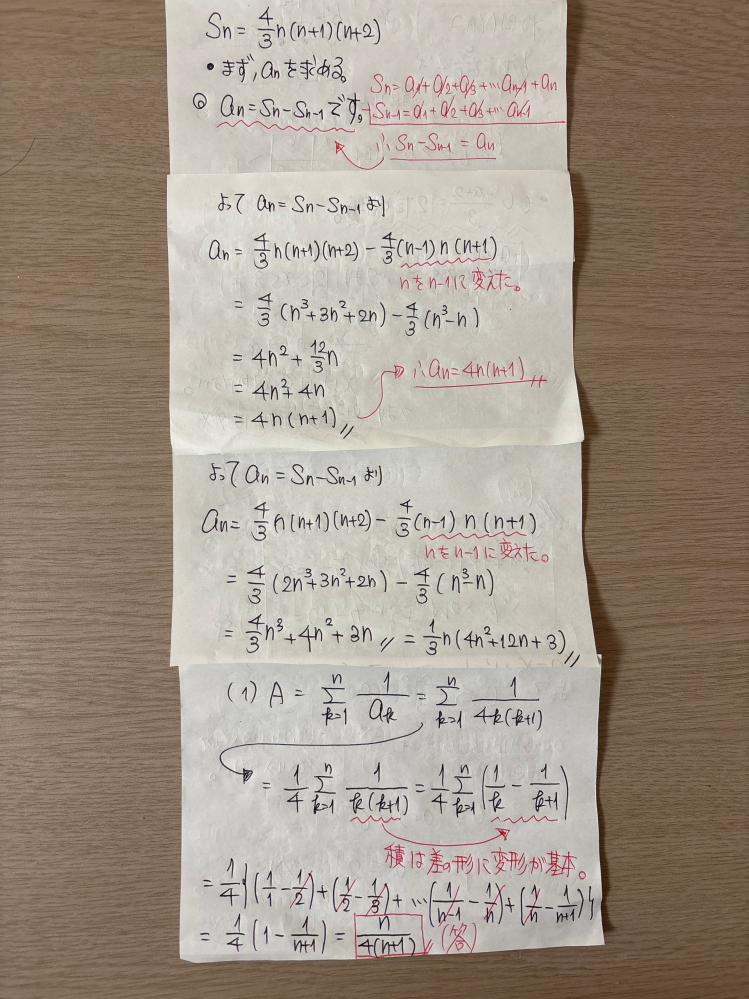 Sn = 4/3 n(n+1)(n+2)
・まず, an を求める。
◎ an = Sn − Sn-1 です。
Sn = a1 + a2 + a3 + … an-1 + an
−) Sn-1 = a1 + a2 + a3 + … an-1
∴ Sn − Sn-1 = an
よって an = Sn − Sn-1 より
an = 4/3 n(n+1)(n+2) − 4/3 (n-1) n (n+1)
nをn-1に変えた。
= 4/3 (n³+3n²+2n) − 4/3 (n³−n)
= 4n² + 12/3 n
= 4n² + 4n
= 4n(n+1) //
∴ an = 4n(n+1) //
よって an = Sn − Sn-1 より
an = 4/3 n(n+1)(n+2) − 4/3 (n-1) n (n+1)
nをn-1に変えた。
= 4/3 (2n³+3n²+2n) − 4/3 (n³−n)
= 4/3 n³ + 4n² + 3n // = 1/3 n(4n²+12n+3) //
(1) A = Σ[k=1→n] 1/ak = Σ[k=1→n] 1/4k(k+1)
= 1/4 Σ[k=1→n] 1/k(k+1) = 1/4 Σ[k=1→n] (1/k − 1/k+1)
積は差の形に変形が基本。
= 1/4 {(1/1 − 1/2) + (1/2 − 1/3) + … (1/n-1 − 1/n) + (1/n − 1/n+1)}
= 1/4 (1 − 1/n+1) = n/4(n+1) // (答)